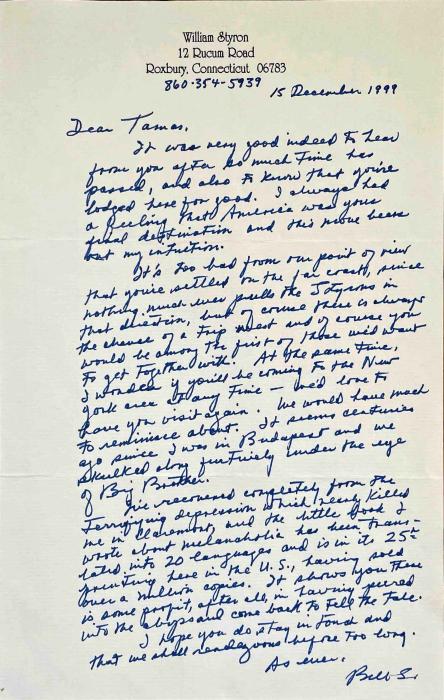 William Styron
12 Rucum Road
Roxbury, Connecticut 06783
860-354-5939
15 December 1999
Dear Tamas,
It was very good indeed to hear
from you after so much time has
passed, and also to know that you're
lodged here for good. I always had
a feeling that America was your
final destination and this move bears
out my intuition.
It's too bad from our point of view
that you're settled on the far coast, since
nothing much ever pulls the Styrons in
that direction, but of course there is always
the chance of a trip west and of course you
would be among the first of those we'd want
to get together with. At the same time,
I wonder if you'll be coming to the New
York area at any time — we'd love to
have you visit again. We would have much
to reminisce about. It seems centuries
ago since I was in Budapest and we
skulked along furtively under the eye
of Big Brother.
I've recovered completely from the
terrifying depression which nearly killed
me in Claremont, and the little book I
wrote about melancholia has been trans-
lated into 20 languages and is in its 25th
printing here in the U.S., having sold
over a million copies. It shows you there
is some profit, after all, in having peered
into the abyss and come back to tell the tale.
I hope you do stay in touch and
that we shall rendezvous before too long.
As ever,
Bill S.